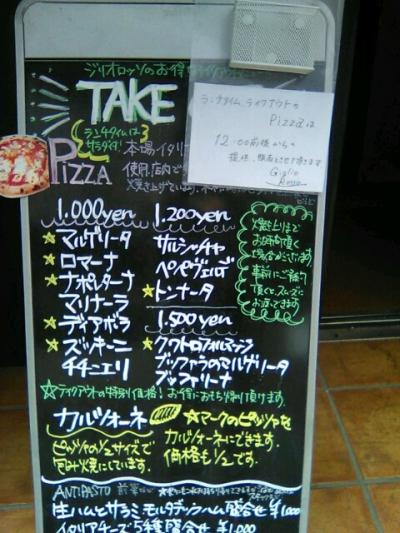 ジリオロッソのお得な
TAKE
ランチタイム テイクアウトの
Pizzaは
12:00前後からの
提供、販売とさせて頂きます
Giglio
Rosso
ランチタイムは
サラダ付!
PIZZA
本場イタリア
使用。店内で
焼き上げています。
1.000yen
★マルゲリータ
★ロマーナ
★ナポレターナ
マリナーラ
★ディアボラ
★ズッキーニ
チチニエリ
1.200yen
サルシッチャ
ペペヴェルデ
★トンナータ
1.500yen
★クワトロフォルマッジ
ブッファラのマルゲリータ
ブッファリーナ
焼き上りまで
お時間頂く
場合がございます。
事前にご予約
頂くと、スムーズに
お渡しできます
☆テイクアウトの特別価格!お得にお持ち帰り頂けます。
カルツォーネ
ピッツァの1/2サイズで
包み焼にしています。
★マークのピッツァを
カルツォーネにできます。
価格も1/2です。
ANTIPASTO 前菜
生ハムとサラミ モルタデッラハム盛合せ ¥1.000
イタリアチーズ5種盛合せ ¥1.000